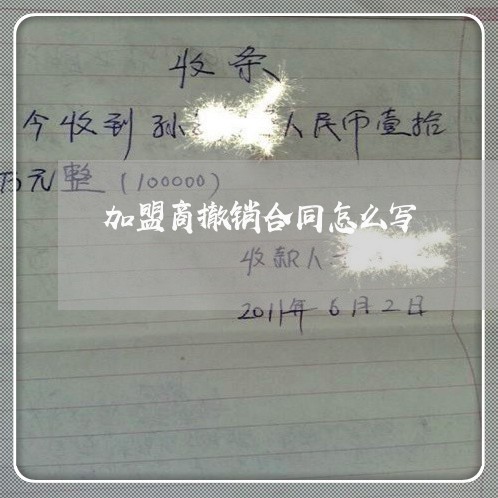 收条
今收到孙 人民币壹拾
万元整(100000)
加盟商撤销合同怎么写
收款人
2011年6月2日